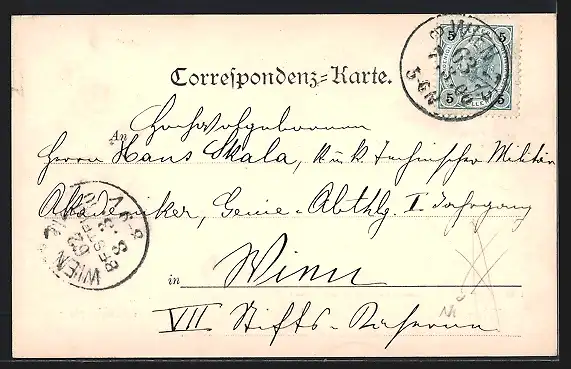 Correspondenz-Karte.
An Hochwolgeboren
Herrn Hans Skala, k u k technischer Militär
Akademiker, Genie-Abthlg. I. Jahrgang
in Wien
VII Stifts-Kaserne
5 5
5 5
WIEN
5-6N
WIEN 62
BESTELLT